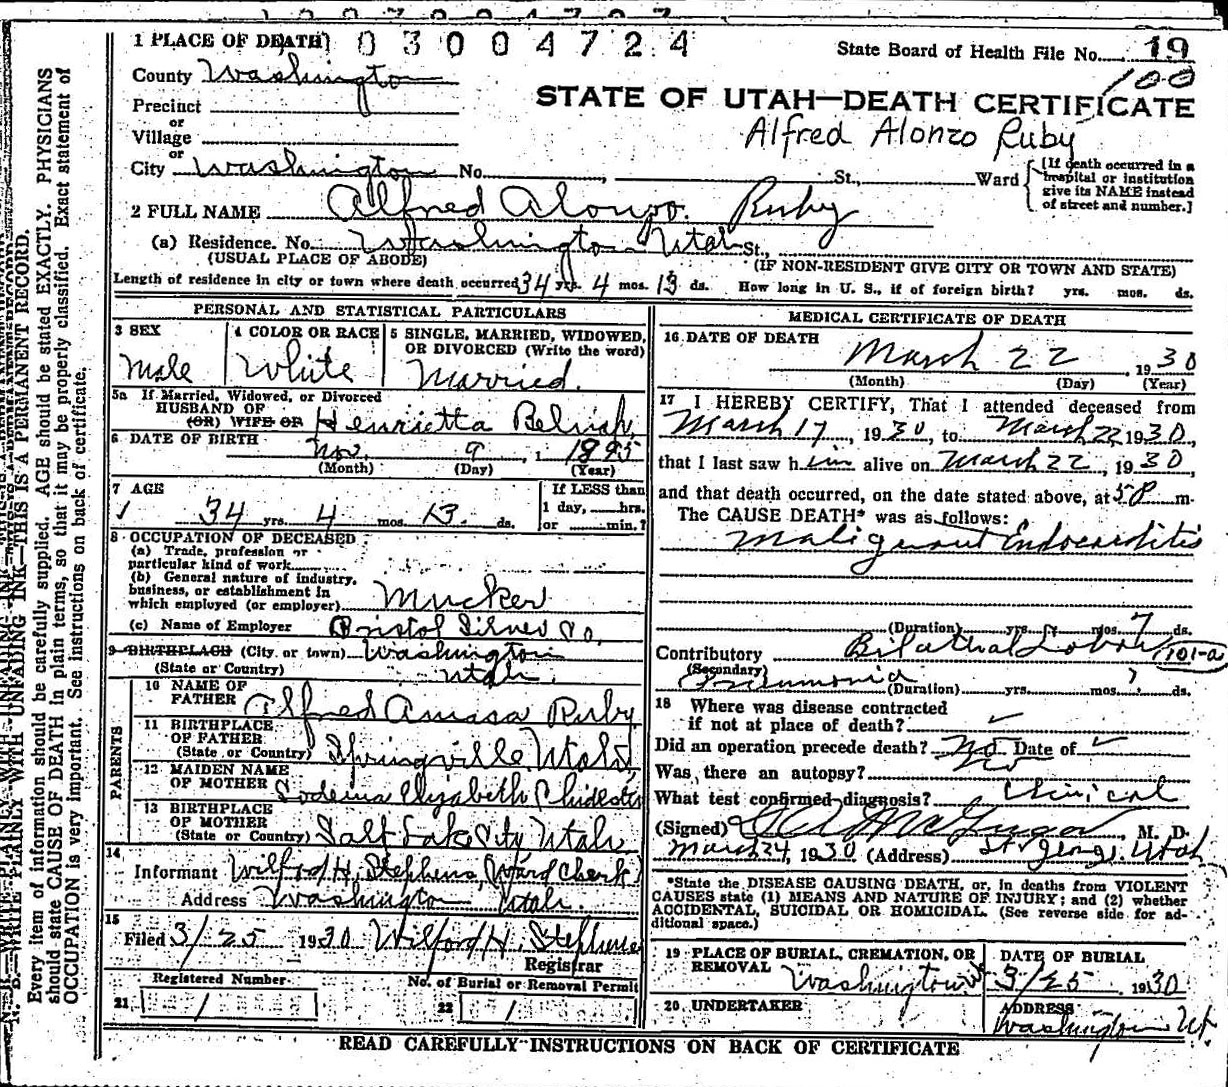 1 PLACE OF DEATH 0 3 0 0 4 7 2 4
State Board of Health File No. 19
100
County Washington
STATE OF UTAH—DEATH CERTIFICATE
Precinct
or
Village
Alfred Alonzo Ruby
or
City Washington No. St., Ward
[If death occurred in a
hospital or institution
give its NAME instead
of street and number.]
2 FULL NAME Alfred Alonzo. Ruby
(a) Residence. No. Washington Utah St.,
(USUAL PLACE OF ABODE) (IF NON-RESIDENT GIVE CITY OR TOWN AND STATE)
Length of residence in city or town where death occurred 34 yrs. 4 mos. 13 ds. How long in U. S., if of foreign birth? yrs. mos. ds.
PERSONAL AND STATISTICAL PARTICULARS
3 SEX 4 COLOR OR RACE 5 SINGLE, MARRIED, WIDOWED,
OR DIVORCED (Write the word)
Male White Married.
5a If Married, Widowed, or Divorced
HUSBAND OF
(OR) WIFE OF Henrietta
6 DATE OF BIRTH Nov. 9, 1895
(Month) (Day) (Year)
7 AGE If LESS than
1 day, hrs.
34 yrs. 4 mos. 13. ds. or min.?
8 OCCUPATION OF DECEASED
(a) Trade, profession or
particular kind of work
(b) General nature of industry,
business, or establishment in
which employed (or employer) Mucker
(c) Name of Employer Bristol Silver Co.
9 BIRTHPLACE (City or town) Washington
(State or Country) Utah.
PARENTS
10 NAME OF
FATHER Alfred Amasa Ruby
11 BIRTHPLACE
OF FATHER
(State or Country) Springville Utah
12 MAIDEN NAME
OF MOTHER Elizabeth Chidester
13 BIRTHPLACE
OF MOTHER
(State or Country) Salt Lake City Utah
14
Informant Wilford H. Stephens, (Ward Clerk)
Address Washington Utah.
15
Filed 3/25 1930 Wilford H. Stephens
Registrar
Registered Number No. of Burial or Removal Permit
21 1 22 1
MEDICAL CERTIFICATE OF DEATH
16 DATE OF DEATH
March 22, 1930
(Month) (Day) (Year)
17 I HEREBY CERTIFY, That I attended deceased from
March 17, 1930, to March 22 1930,
that I last saw him alive on March 22, 1930,
and that death occurred, on the date stated above, at 5 P m.
The CAUSE DEATH* was as follows:
Malignant Endocarditis
(Duration) yrs. mos. 7 ds.
Contributory Bilateral Lobar 101-a
(Secondary) Pneumonia
(Duration) yrs. mos. ds.
18 Where was disease contracted
if not at place of death?
Did an operation precede death? No Date of
Was there an autopsy? No
What test confirmed diagnosis? Clinical
(Signed) M. D.
March 24, 1930 (Address) St. George. Utah
*State the DISEASE CAUSING DEATH, or, in deaths from VIOLENT
CAUSES state (1) MEANS AND NATURE OF INJURY; and (2) whether
ACCIDENTAL, SUICIDAL OR HOMICIDAL. (See reverse side for ad-
ditional space.)
19 PLACE OF BURIAL, CREMATION, OR
REMOVAL Washington Ut
DATE OF BURIAL
3/25 1930
20 UNDERTAKER
ADDRESS
Washington Ut.
READ CAREFULLY INSTRUCTIONS ON BACK OF CERTIFICATE
N. B.—WRITE PLAINLY WITH UNFADING INK—THIS IS A PERMANENT RECORD.
Every item of information should be carefully supplied. AGE should be stated EXACTLY. PHYSICIANS
should state CAUSE OF DEATH in plain terms, so that it may be properly classified. Exact statement of
OCCUPATION is very important. See instructions on back of certificate.